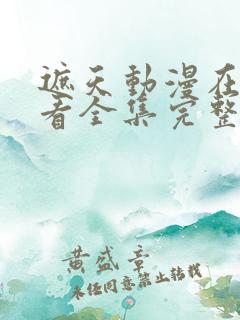 遮天動漫在
看全集完整
黄盛章
未经同意禁止转载